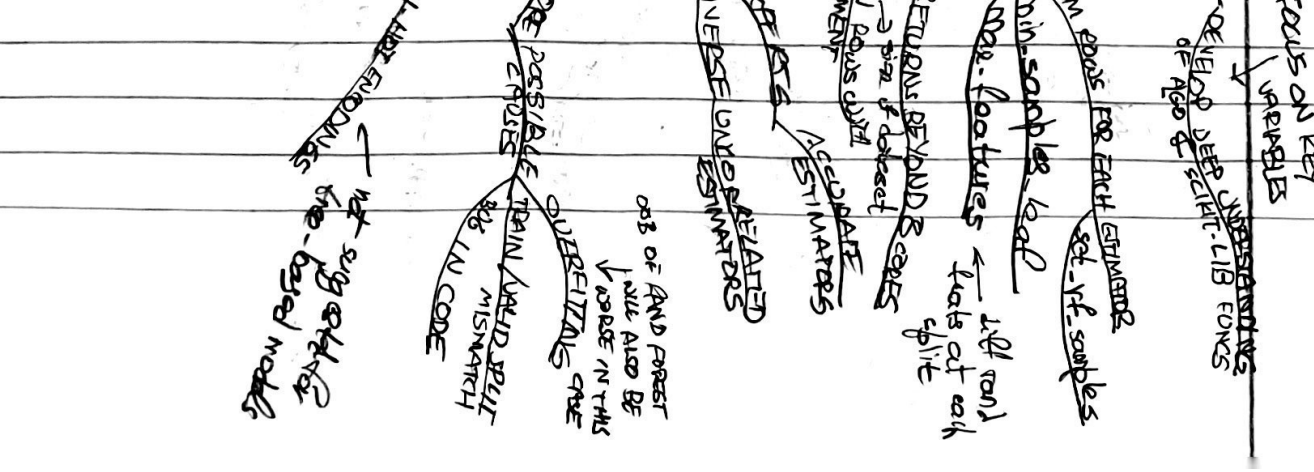 FOCUS ON KEY
VARIABLES
DEVELOP DEEP UNDERSTANDING
OF ALGO & SCIKIT-LIB FUNCS
ROWS FOR EACH ESTIMATOR
set_rf_samples
min-samples-leaf
max-features ← diff rand
feats at each
split
RETURNS BEYOND 8 CORES
→ size of dataset
ROWS WITH
ACCURATE
ESTIMATORS
UNCORRELATED
ESTIMATORS
OOB OF RAND FOREST
↓ WILL ALSO BE
WORSE IN THIS
CASE
POSSIBLE
CAUSES
OVERFITTING
TRAIN/VALID SPLIT
MISMATCH
BUG IN CODE
ENCODINGS
← not suggested for
tree-based models